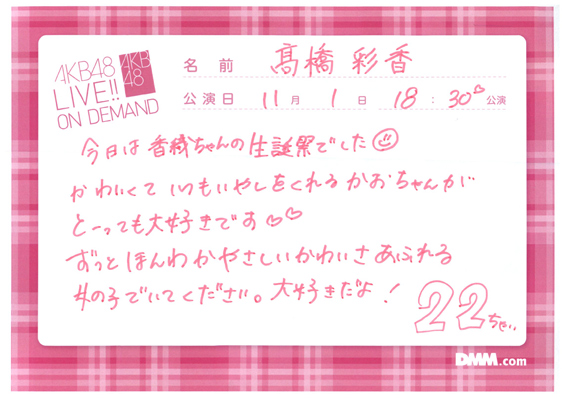 AKB48
LIVE!!
ON DEMAND
AKB
48
名前 髙橋 彩香
公演日 11月 1日 18:30公演
今日は香織ちゃんの生誕祭でした
かわいくていつもいやしをくれるかおちゃんが
とーっても大好きです♡♡
ずっとほんわかやさしいかわいさあふれる
女の子でいてください。大好きだよ!
22ちゃい
DMM.com